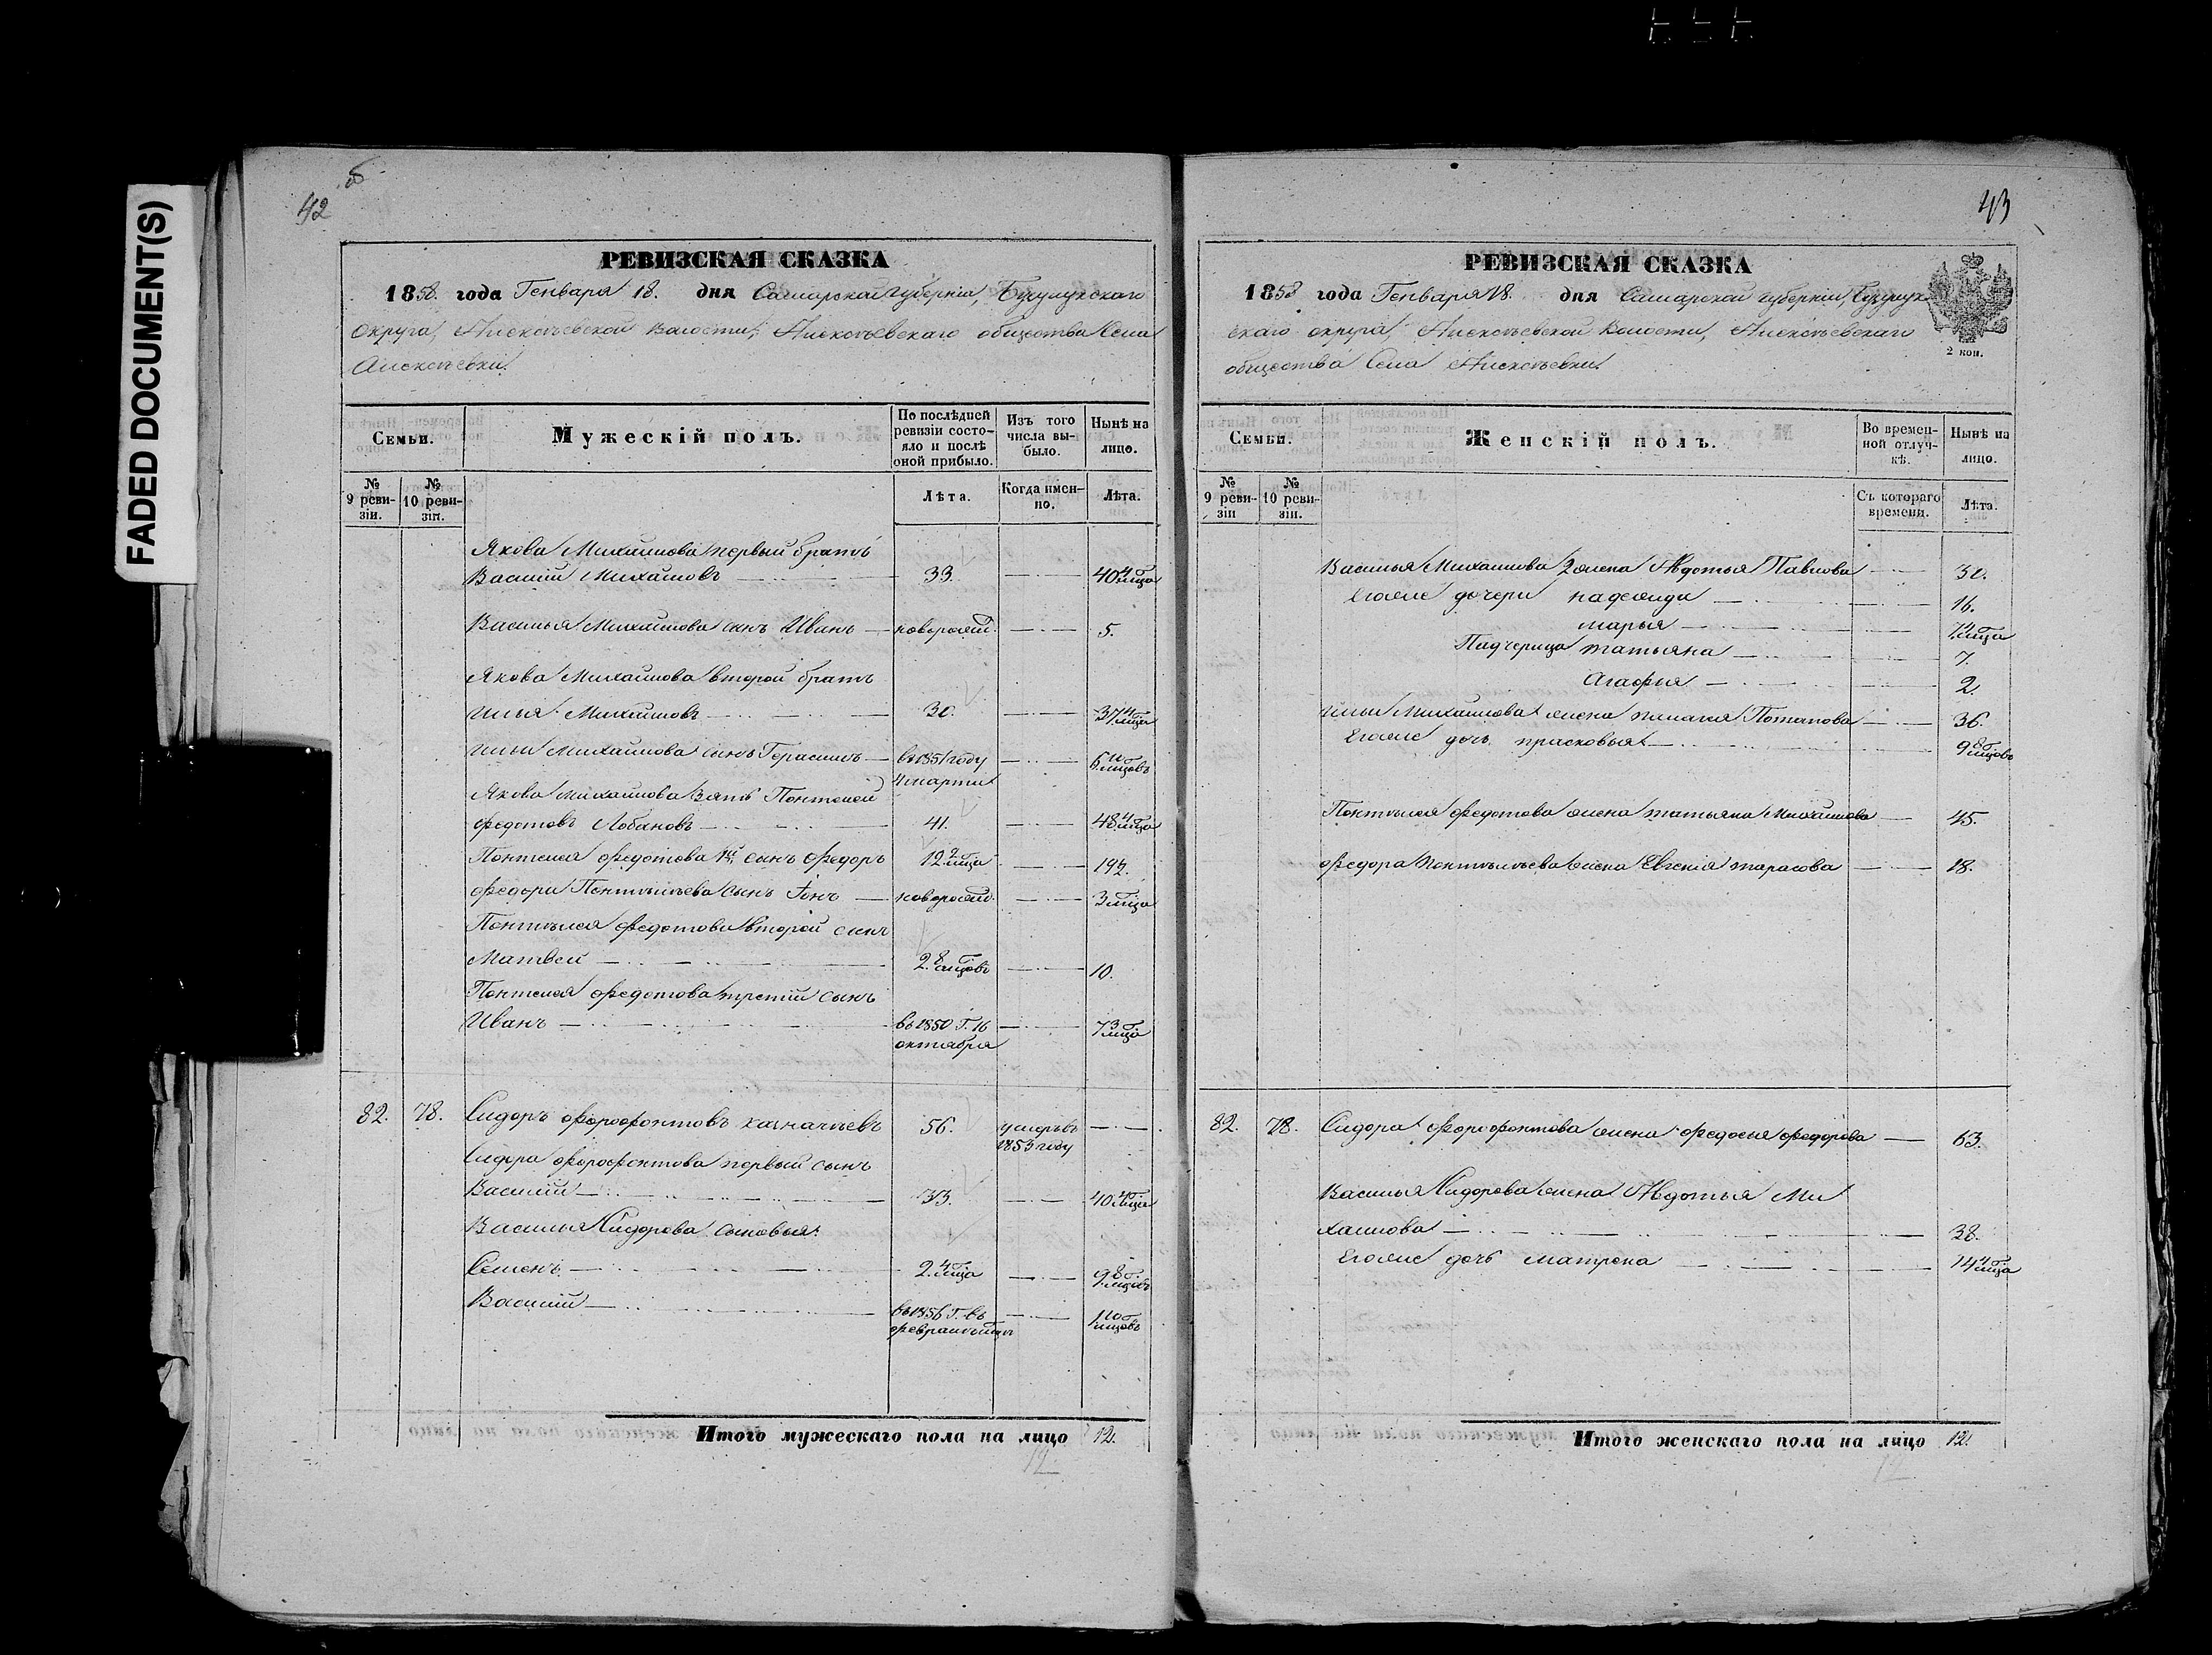 FADED DOCUMENT(S)
42
РЕВИЗСКАЯ СКАЗКА
1858. года Генваря 18. дня Самарской губернiи, Бузулукскаго
округа, Алексѣевской волости, Алексѣевскаго общества Села
Алексѣевки.
Семьи.
Мужескiй полъ.
По послѣдней ревизiи состояло и послѣ оной прибыло.
Изъ того числа выбыло.
Нынѣ на лицо.
№ 9 ревизiи.
№ 10 ревизiи.
Лѣта.
Когда именно.
Лѣта.
Якова Михайлова первый братъ
Василiй Михайловъ 33. 40 4 м-ца
Василья Михайлова сынъ Иванъ новорожд. 5.
Якова Михайлова второй братъ
Илья Михайловъ 30. 37 4 м-ца
Ильи Михайлова сынъ Герасимъ в 1851 году 6 м-цовъ
4 марта
Якова Михайлова зять Понтелей
Федотовъ Лобановъ 41. 48 4 м-ца
Понтелея Федотова 1й сынъ Федоръ 12 2 м-ца 19
Федора Понтѣлѣева сынъ новорожд. 3 м-ца
Понтѣлея Федотова второй сынъ
Матвей 2. 8 м-цовъ 10.
Понтелея Федотова третiй сынъ
Иванъ въ 1850 г. 16 7 3 м-ца
октября
82. 78. Сидоръ Форофонтовъ Казначѣевъ 56. умеръ въ
1853 году
Сидора Форофонтова первый сынъ
Василiй 33. 40 4 м-ца
Василья Сидорова сыновья:
Семенъ 2. 4 м-ца 9 8 м-цовъ
Василiй въ 1856 г. въ 1 10 м-цовъ
феврале м-цѣ
Итого мужескаго пола на лицо 12.
12
43
РЕВИЗСКАЯ СКАЗКА
1858 года Генваря 18. дня Самарской губернiи, Бузулук-
скаго округа, Алексѣевской волости, Алексѣевскаго
общества Села Алексѣевки.
2 коп.
Семьи.
Женскiй полъ.
Во временной отлучкѣ.
Нынѣ на лицо.
№ 9 ревизiи
№ 10 ревизiи.
Съ котораго времени.
Лѣта.
Василья Михайлова 2 жена Авдотья Павлова 30.
Егоже дочери надежда 16.
марья 7 4 м-ца
Падчерица татьяна 7.
Агафья 2.
Ильи Михайлова жена пелагея Потапова 36.
Егоже дочь прасковья 9 8 м-цовъ
Понтѣлея Федотова жена татьяна Михайлова 45.
Федора Понтѣлѣева жена Евгенiя тарасова 18.
82. 78. Сидора Форофонтова жена Федосья Федорова 63.
Василья Сидорова жена Авдотья Ми
хайлова 38.
Егоже дочь матрена 14 4 м-ца
Итого женскаго пола на лицо 12.
12